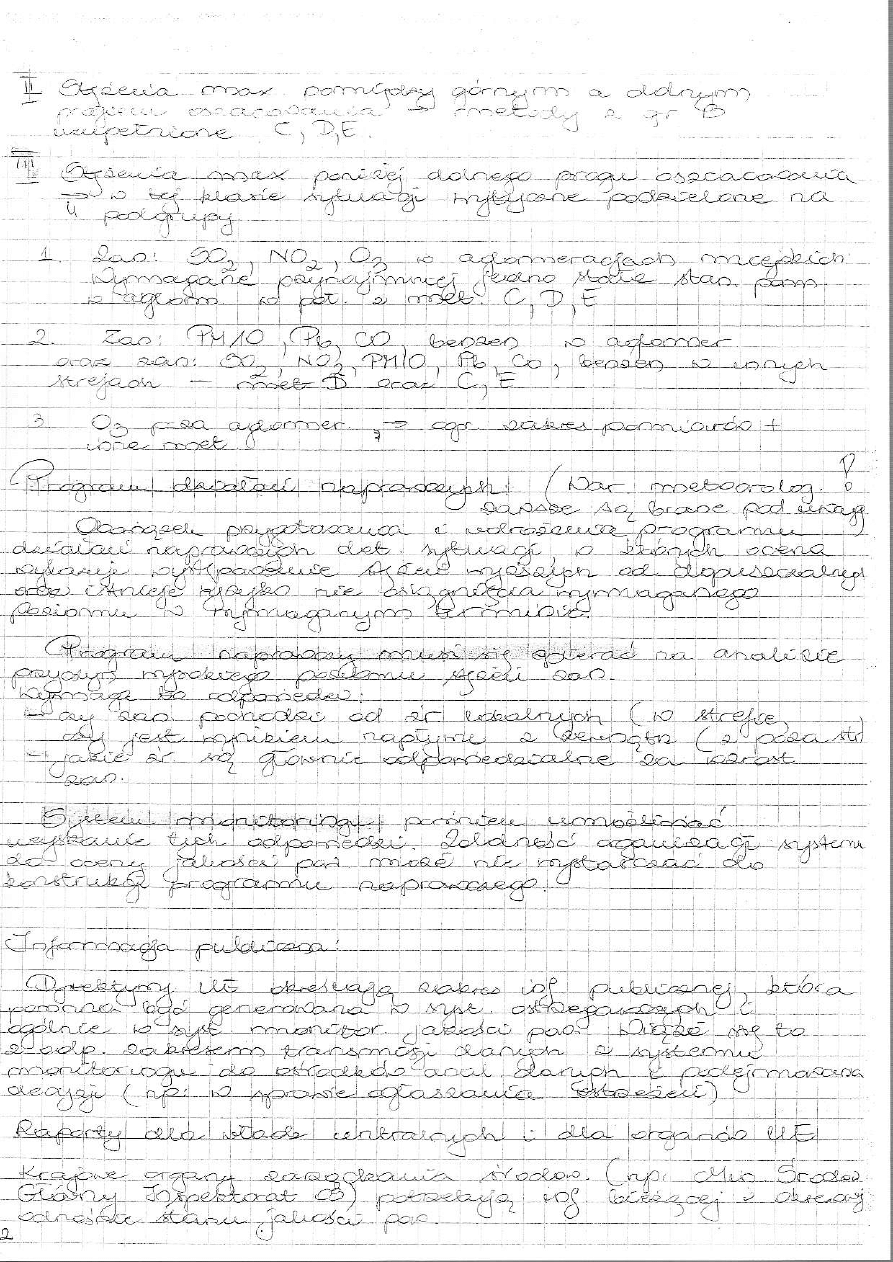 II Stężenia max pomiędzy górnym a dolnym
progiem oszacowania → metody z gr B
uzupełnione C, D, E.
III Stężenia max poniżej dolnego progu oszacowania
→ w tej klasie sytuacji wytyczne podzielone na
4 podgrupy
1. Zan: SO2, NO2, O3 w aglomeracjach miejskich
Wymagane przynajmniej jedno stałe stan. pom
w aglom w poł. z met. C, D, E
2. Zan: PM10, Pb, CO, benzen w aglomer
oraz zan: SO2, NO2, PM10, Pb, Co, benzen w innych
strefach — met D oraz C, E
3 O3 poza aglomer → ogr zakres pomiarów +
inne met
Program działań naprawczych (War meteorolog. !
zawsze są brane pod uwagę)
Obowiązek przygotowania i wdrożenia programu
działań naprawczych dot. sytuacji, w których ocena
wykazuje występowanie stężeń wyższych od dopuszczalnego
oraz istnieje ryzyko nie osiągnięcia wymaganego
poziomu w wymaganym terminie.
Program naprawczy musi się opierać na analizie
przyczyn wysokiego poziomu stężeń zan.
Wymaga to odpowiedzi:
→ czy zan pochodzi od źr lokalnych (w strefie,
czy jest wynikiem napływu z zewnątrz (z poza str
→ jakie źr są głównie odpowiedzialne za wzrost
zan.
System monitoringu powinien umożliwiać
uzyskanie tych odpowiedzi. Zdolność organizacji systemu
do oceny jakości pow może nie wystarczać do
konstrukcji programu naprawczego.
Informacja publiczna:
Dyrektywy UE określają zakres inf publicznej, która
powinna być generowana w syst. ostrzegawczych i
ogólnie w syst monitor jakości pow. Wiąże się to
z odp. zakresem transmisji danych z systemu
monitoringu do ośrodków anal danych i podejmowania
decyzji (np: w sprawie ogłaszania ostrzeżeń)
Raporty dla władz centralnych i dla organów UE
Krajowe organy zarządzania środow. (np: Min Środow
Główny Inspektorat OŚ) potrzebują inf bieżącej i okresowej
odnośnie stanu jakości pow.
2